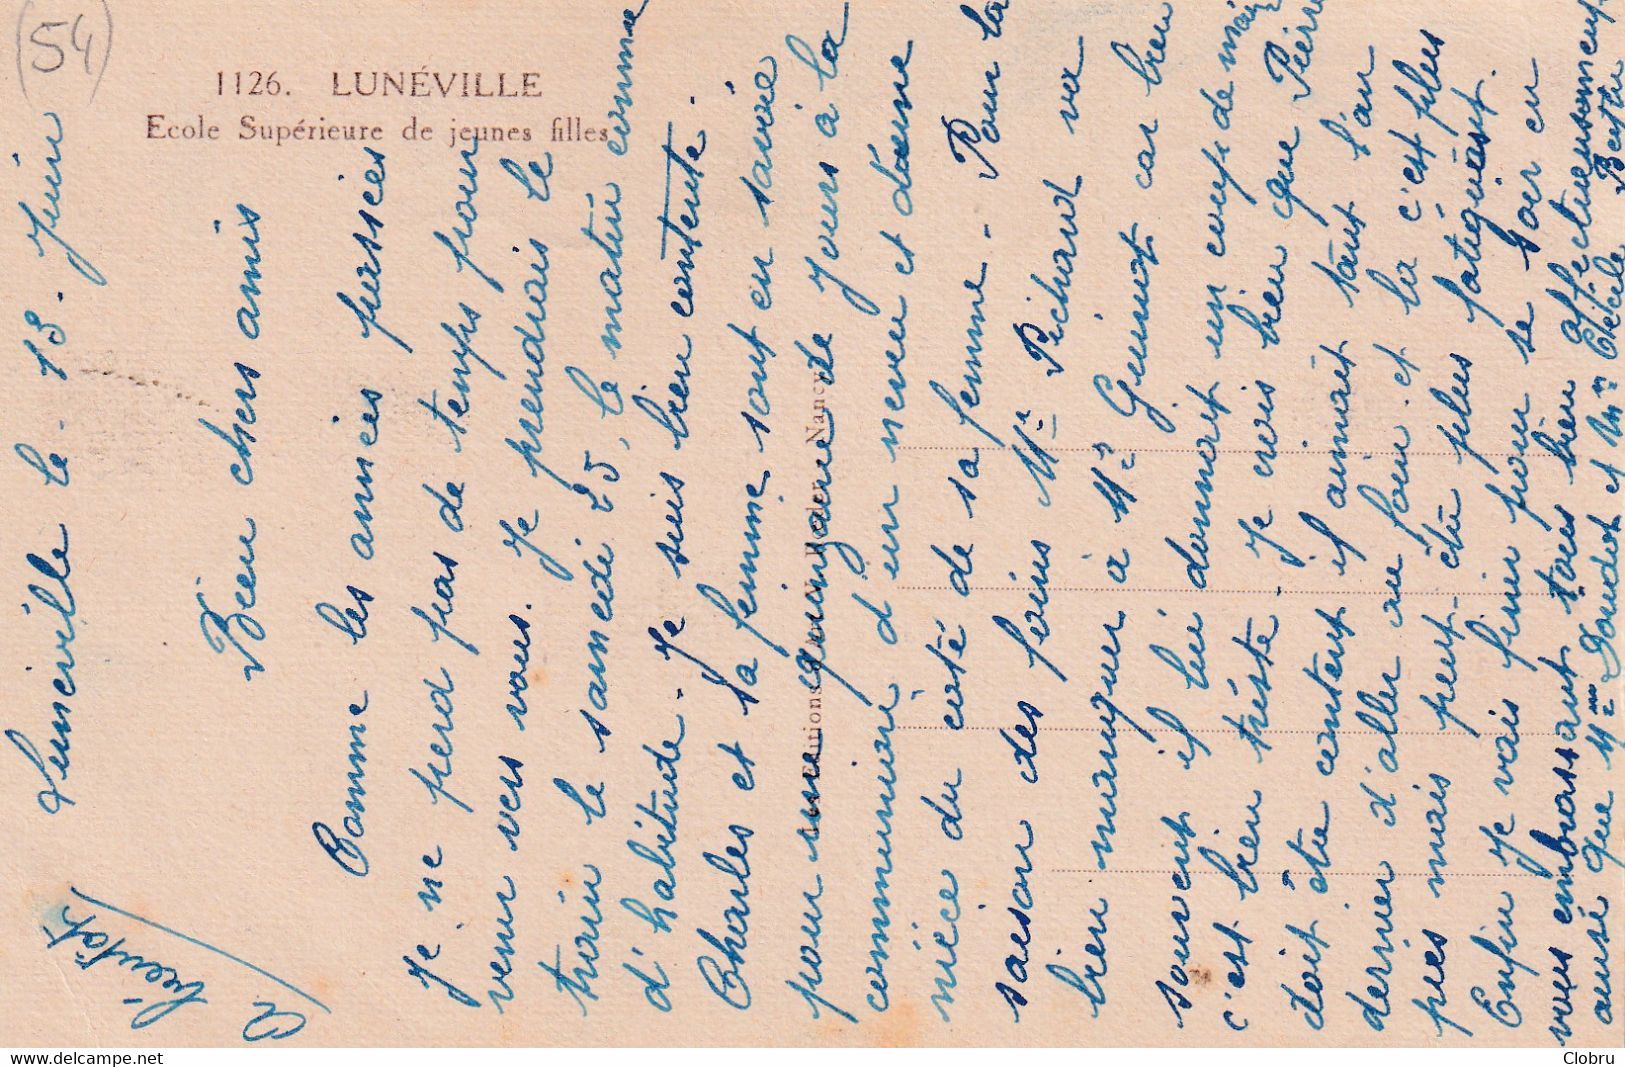 (54)
1126. LUNÉVILLE
Ecole Supérieure de jeunes filles
Les Editions Nancy
Lunéville le 13. Juin
Bien chers amis
Comme les années passées
Je ne perd pas de temps pour
venir vers vous. Je prendrais le
train le samedi 25, le matin comme
d'habitude. Je suis bien contente.
Charles et sa femme sont en Savoie
pour une quinzaine de jours à la
communion d'un neveu et d'une
nièce du coté de sa femme. Pour la
saison des foins Mr Pichard va
bien manquer à Mr Guinot car bien
souvent il lui donnait un coup de main
c'est bien triste. Je crois bien que Pierre
doit être content il aimait tant l'an
dernier d'aller au foin. et là c'est plus
près mais peut-être plus fatiguant.
Enfin je vais finir pour se soir en
vous embrassant tous bien affectueusement
ainsi que Mme Doudot et Mr Cécile Berthe
à bientôt